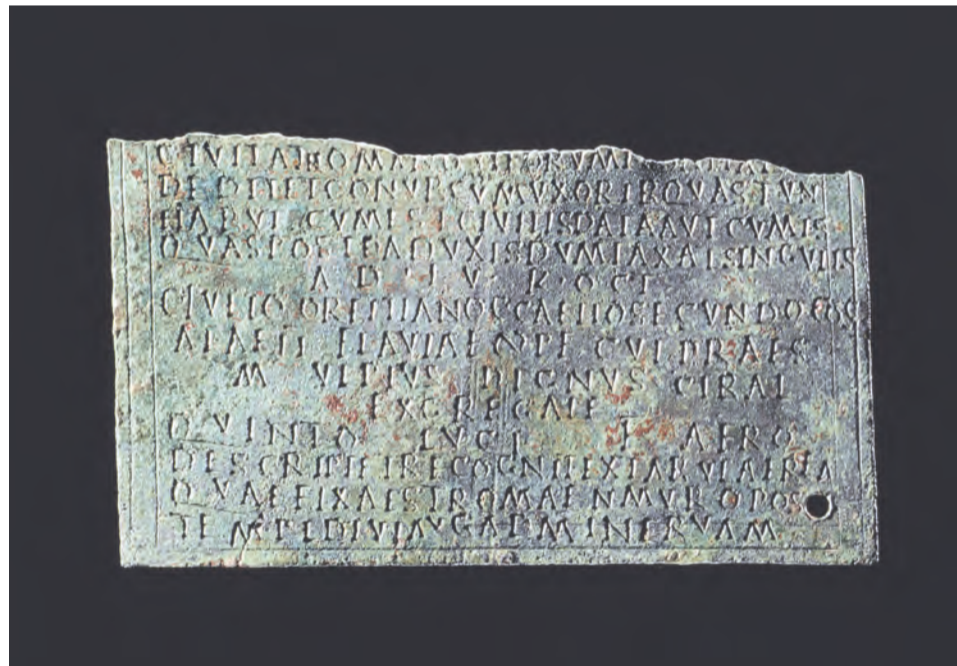 CIVITAT ROMANO QVI EORVM
DEDIT ET CONVB CVM VXORIB QVAS TVN
HABVIS CVM EST CIVITIS DATA AVT CVM IS
QVAS POSTEA DVXIS DVMTAXAT SINGVLIS
A D IV K OCT
C IVLIO ORFITIANO C CAELIO SECVNDO COS
ALAE II FLAVIAE CVI PRAES
M VLPIVS DIGNVS
EX GREGALE
QVINTO LVCI F AFRO
DESCRIPT ET RECOGNIT EX TABVLA EREA
QVAE FIXA EST ROMAE N MVRO POS
TEMPL DIVI AVG AD MINERVAM